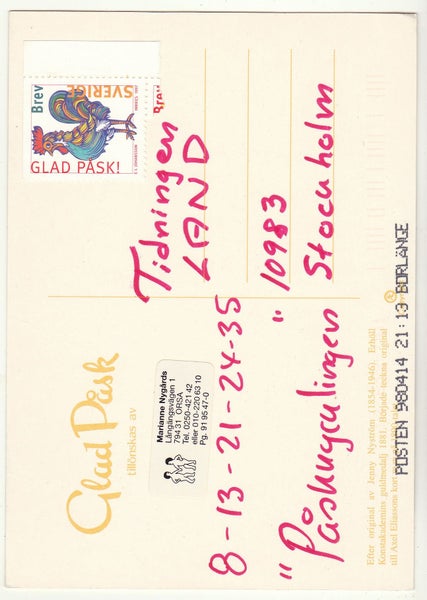 Glad Påsk
tillönskas av
Marianne Nygårds
Långängsvägen 1
794 31 ORSA
Tel. 0250-421 42
eller 010-220 63 10
Pg. 91 95 47-0
8-13-21-24-35
"Påskkycklingen"
Efter original av Jenny Nyström (1854-1946). Erhöll
Konstakademins guldmedalj 1881. Började teckna original
till Axel Eliassons
Brev
SVERIGE
GLAD PÅSK!
Brev
Tidningen
LAND
10983
Stockholm
POSTEN 980414 21:13 BORLÄNGE